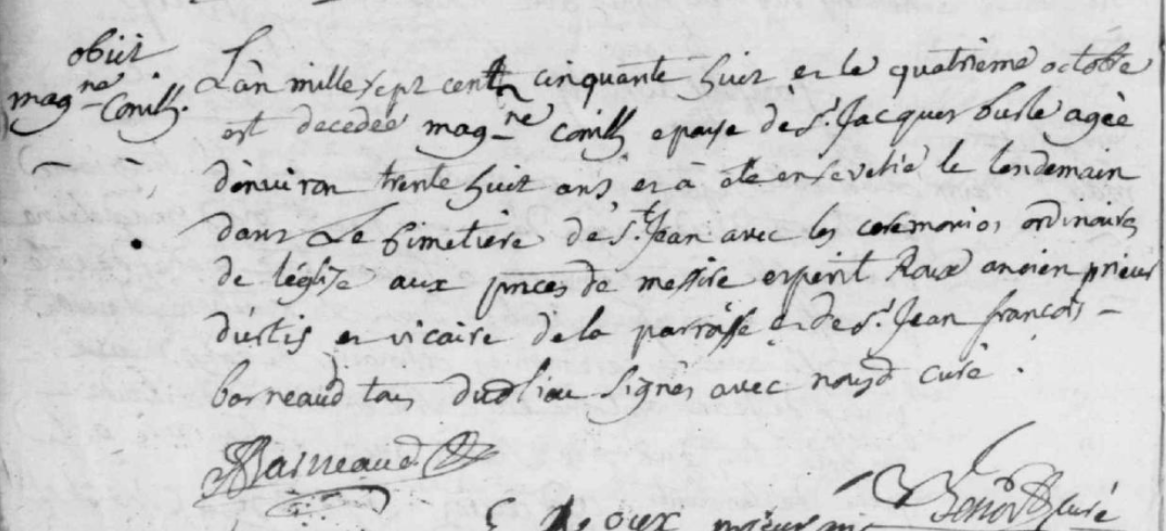 obiit
mag^ne Conilh.
L'an mille sept cent cinquante huit et le quatrieme octobre
est decedée mag^ne conilh epouse de S^r. Jacques burle agée
d'environ trente huit ans et à ete ensevelie le lendemain
dans le Cimetiere de S^t. Jean avec les ceremonies ordinaires
de l'église aux pnces de messire esperit Roux ancien prieur
et vicaire de la parroisse et de S^r. Jean francois
barneaud tous dud lieu signés avec nousd curé.
Barneaud
Roux
curé